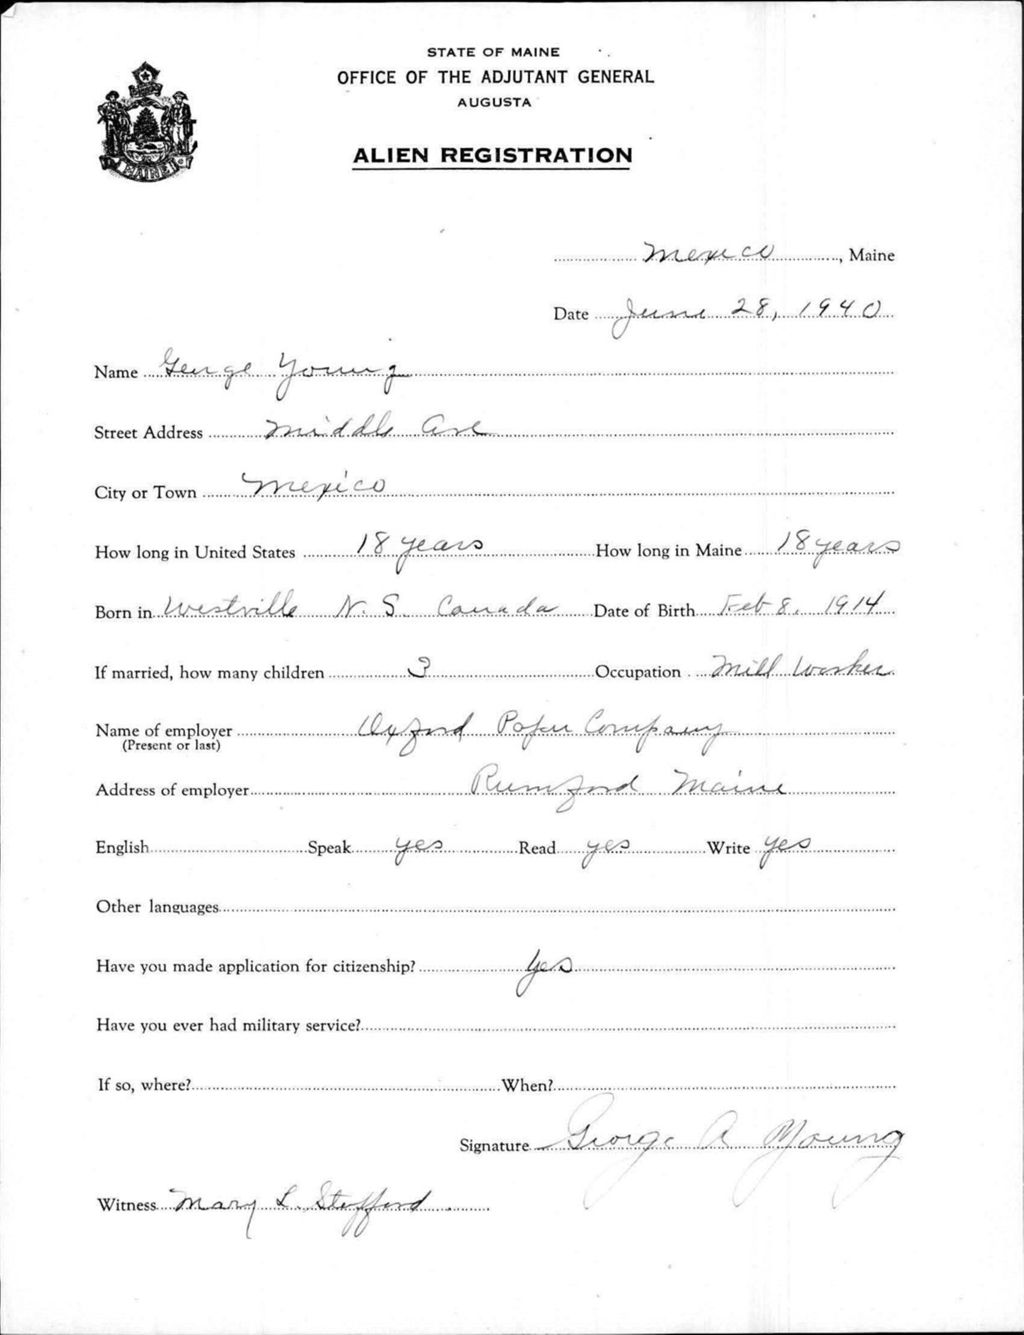 STATE OF MAINE
OFFICE OF THE ADJUTANT GENERAL
AUGUSTA
ALIEN REGISTRATION
MAINE
Mexico, Maine
Date June 28, 1940
Name George Young
Street Address Middle Ave
City or Town Mexico
How long in United States 18 years How long in Maine 18 years
Born in Westville N. S. Canada Date of Birth Feb 8, 1914
If married, how many children 3 Occupation Mill Worker
Name of employer Oxford Paper Company
(Present or last)
Address of employer Rumford Maine
English Speak yes Read yes Write yes
Other languages
Have you made application for citizenship? Yes
Have you ever had military service?
If so, where? When?
Signature George A Young
Witness Mary L. Stafford